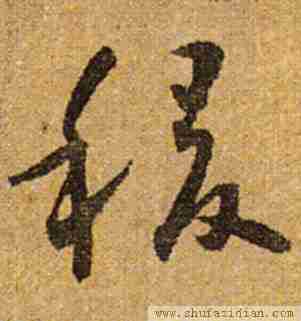 稷
www.shufazidian.com